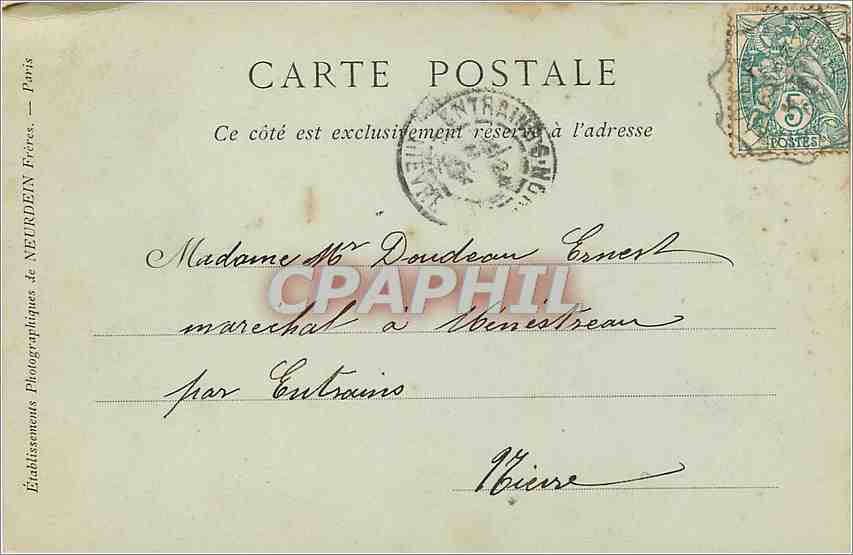 CARTE POSTALE
Ce côté est exclusivement réservé à l'adresse
5
POSTES
ENTRAINS
NIÈVRE
Madame Mr Doudeau Ernest
maréchal à Ménestreau
par Entrains
Nièvre
CPAPHIL
Établissements Photographiques de NEURDEIN Frères. — Paris